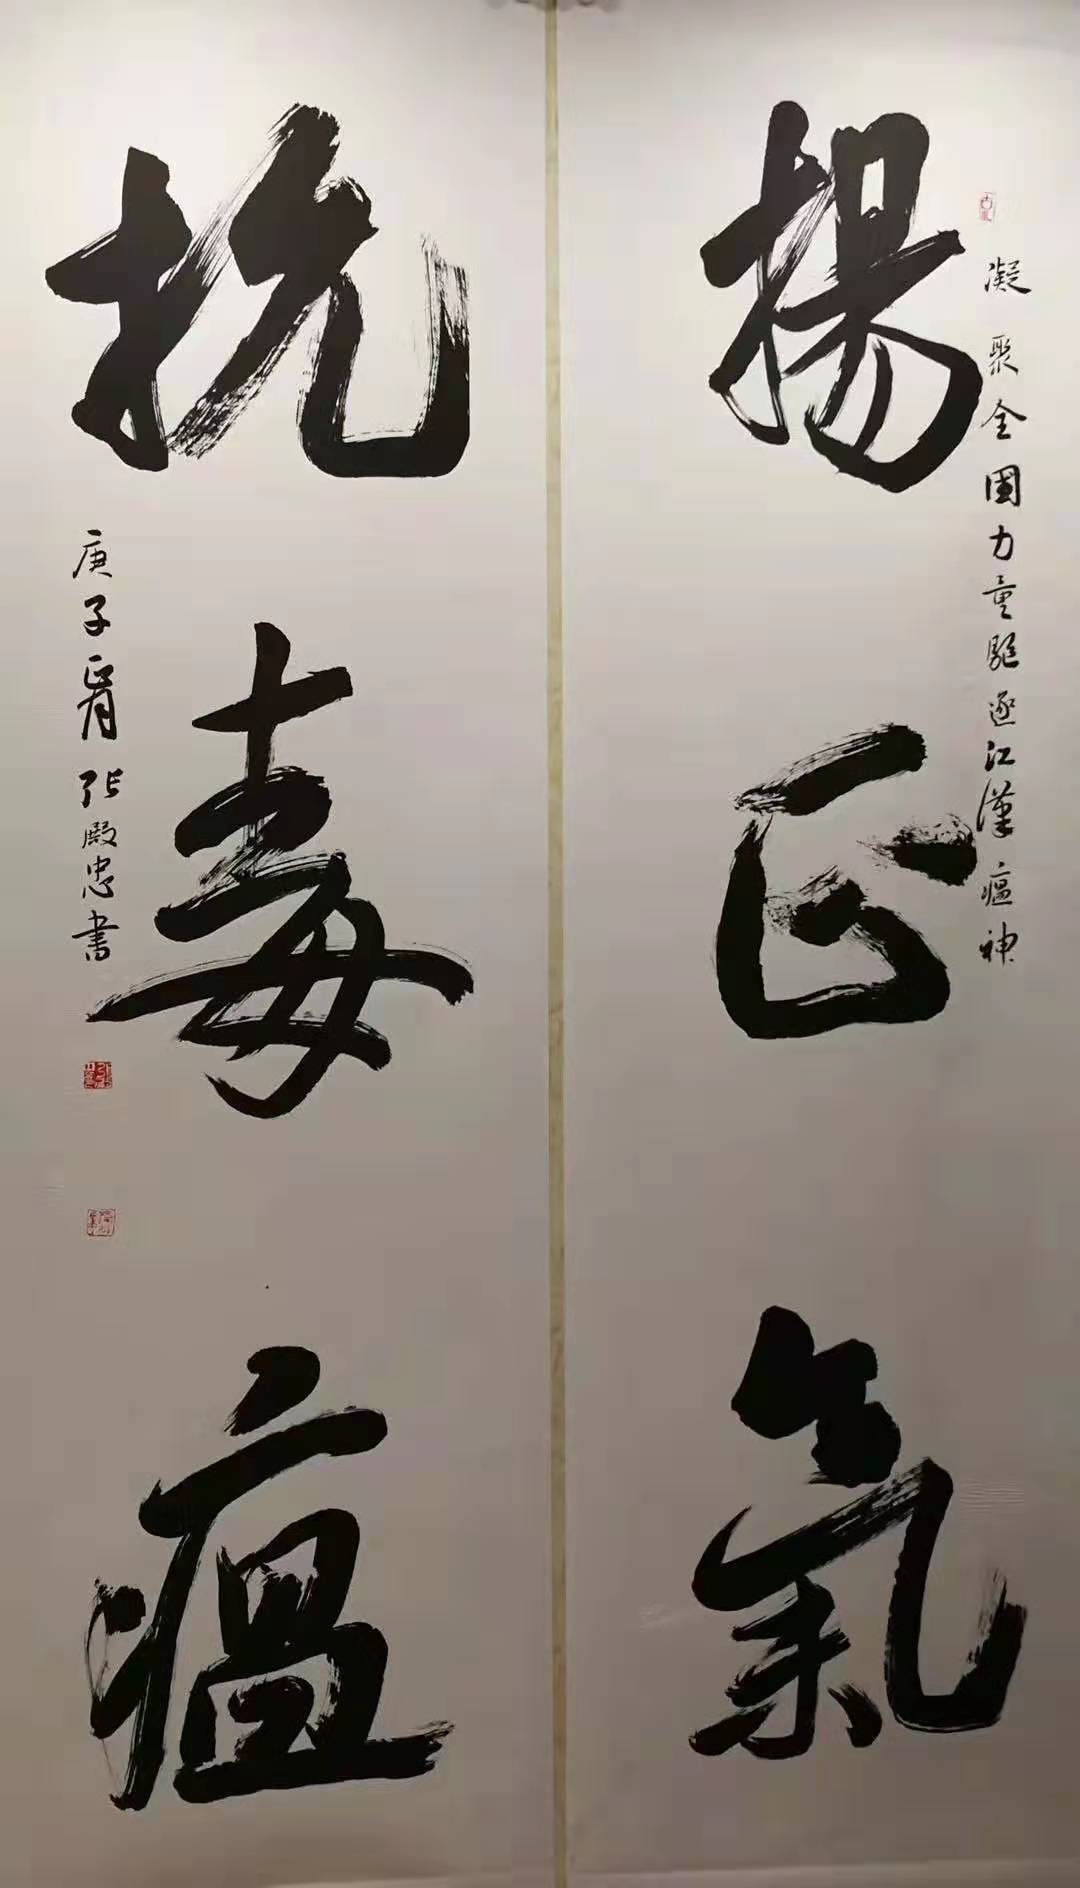 揚正氣
凝聚全國力量驅逐江漢瘟神
抗毒瘟
庚子正月張殿忠書